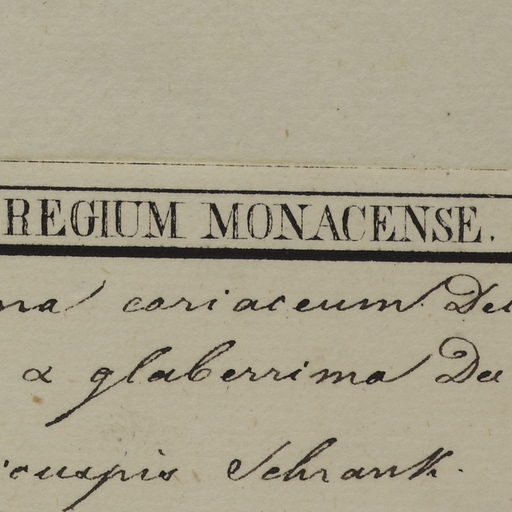 REGIUM MONACENSE.
ma coriaceum De
α glaberrima De
cuspis Schrank.